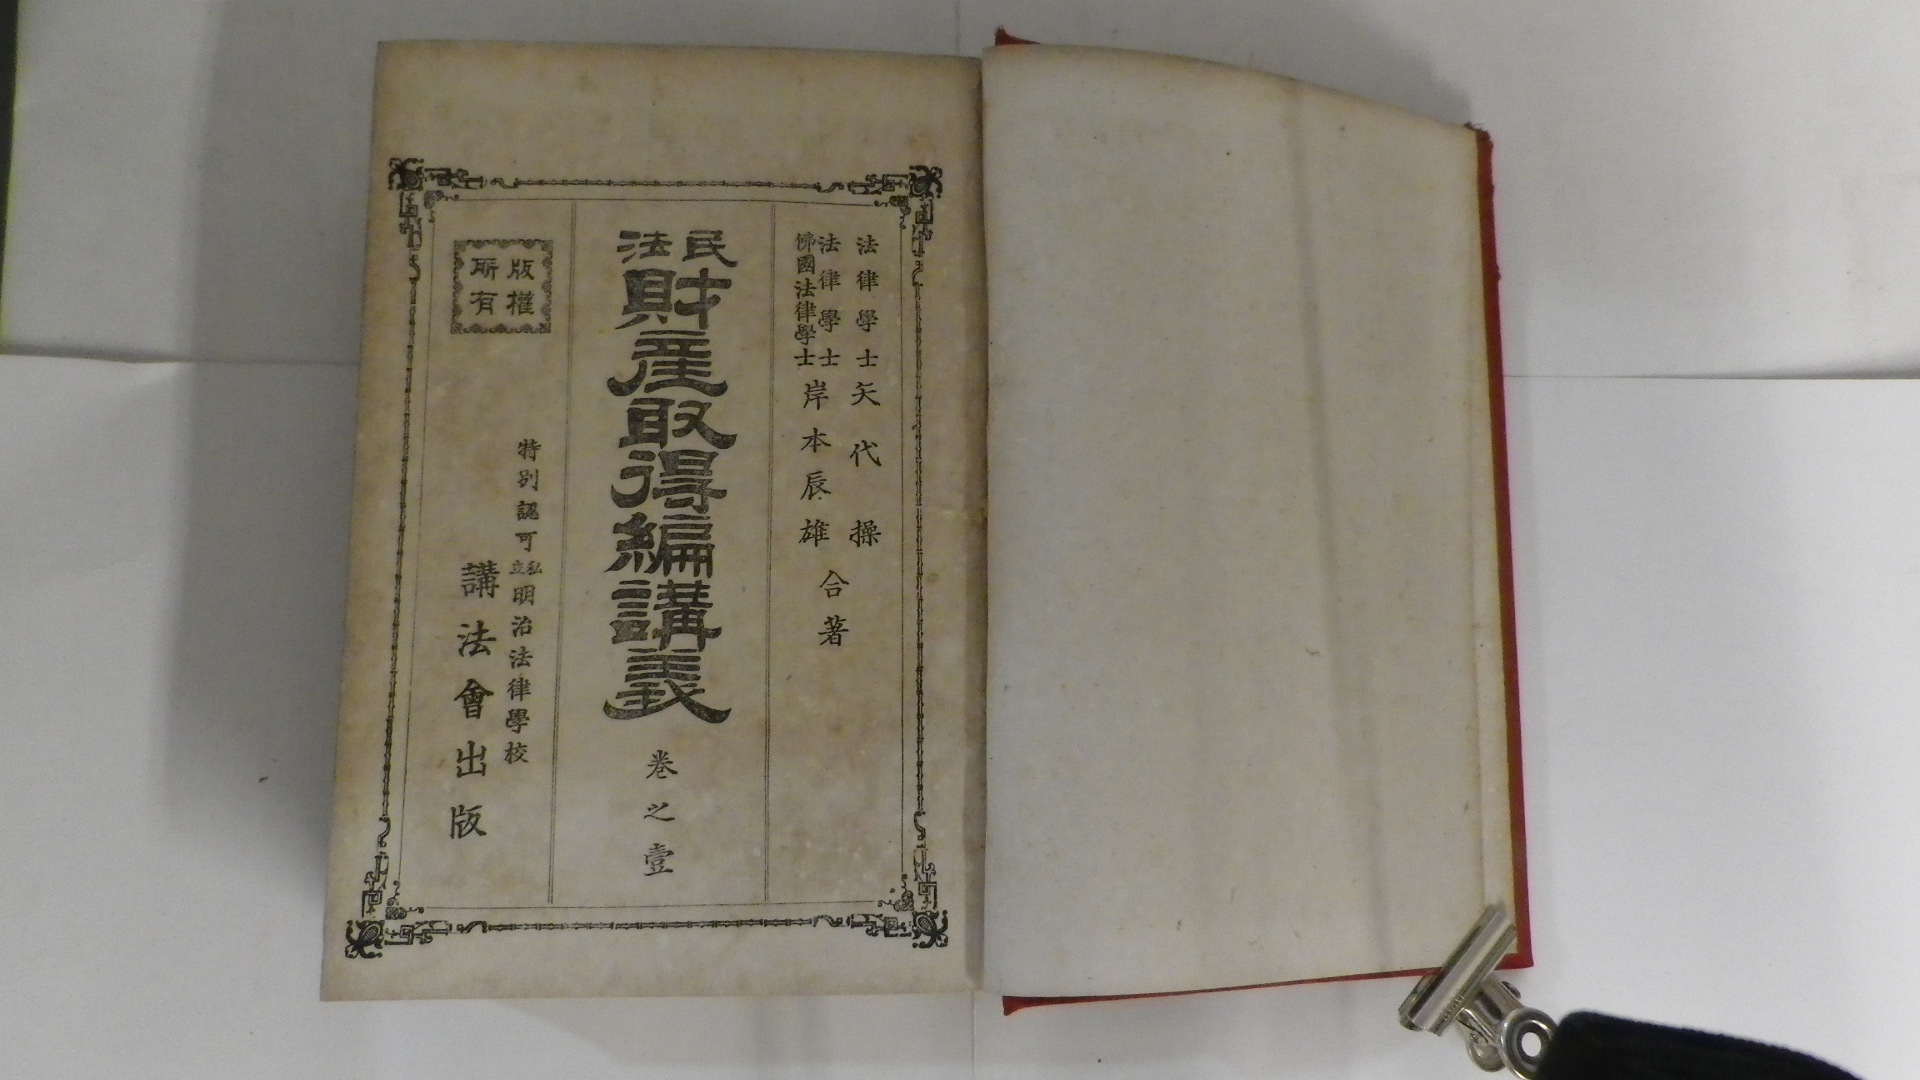 法律學士矢代操
法律學士
佛國法律學士
岸本辰雄
合著
民法
財産取得編講義
卷之壹
版權
所有
特別認可私立明治法律學校
講法會出版